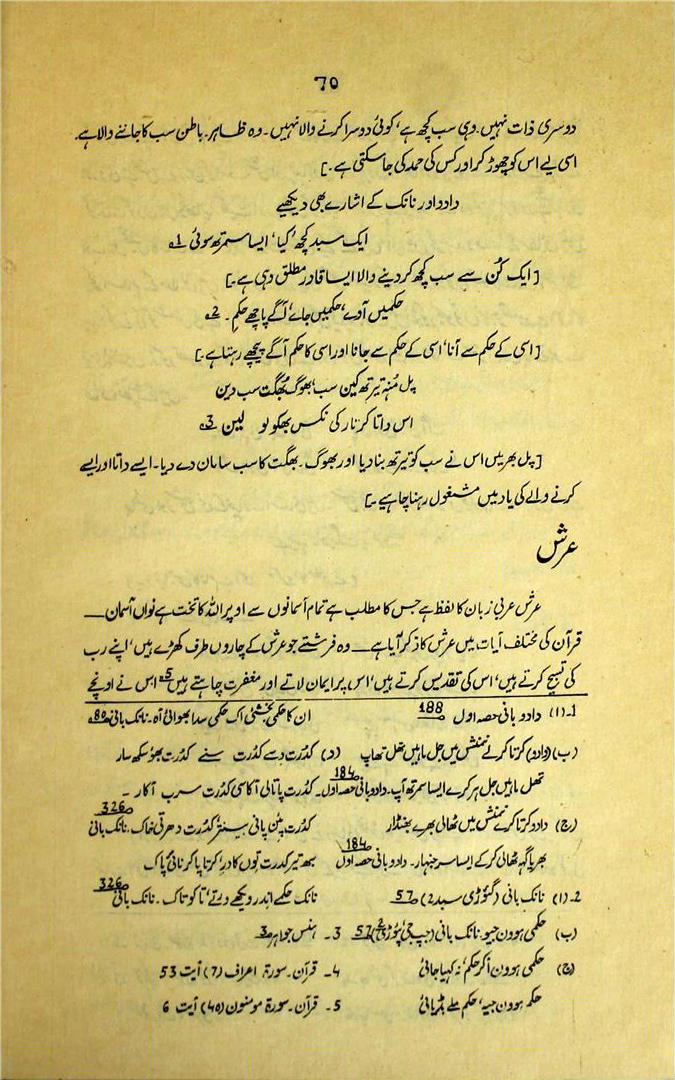 70
دوسری ذات نہیں۔ وہی سب کچھ ہے، کوئی دوسرا کرنے والا نہیں۔ وہ ظاہر۔ باطن سب کا جاننے والا ہے۔
اسی لیے اس کو چھوڑ کر اور کس کی حمد کی جا سکتی ہے۔]
دادو اور نانک کے اشارے بھی دیکھیے
ایک سبد کچھ، کیا، ایسا سمرتھ سوئی 1؎
[ایک کُن سے سب کچھ کر دینے والا ایسا قادر مطلق وہی ہے۔]
حکمیں آوے، حکمیں جاے، آگے پاچھے حکم۔ 2؎
[اسی کے حکم سے آنا، اسی کے حکم سے جانا اور اسی کا حکم آگے پیچھے رہتا ہے۔]
پل مُنہہ تیرتھ کین سب، بھوگ بُھگت سب دین
اس داتا کرنار کی نکس بھکو لو لین 3؎
[پل بھر میں اس نے سب کو تیرتھ بنا دیا اور بھوگ۔ بھگت کا سب سامان دے دیا۔ ایسے داتا اور ایسے
کرنے والے کی یاد میں مشغول رہنا چاہیے۔]
عرش
عرش عربی زبان کا لفظ ہے جس کا مطلب ہے تمام آسمانوں سے اوپر اللہ کا تخت ہے نواں آسمان—
قرآن کی مختلف آیات میں عرش کا ذکر آیا ہے— وہ فرشتے جو عرش کے چاروں طرف کھڑے ہیں، اپنے رب
کی تسبیح کرتے ہیں، اس کی تقدیس کرتے ہیں، اس پر ایمان لاتے اور مغفرت چاہتے ہیں 5؎ اس نے اونچے
1۔ (ا) دادو بانی حصہ اول 188 ان کا حکمی اک حکمی سدا آہ۔ نانک بانی 80؎
(ب) (دادو) کرتا کرے نمنش میں جل ماہیں تھل تھاپ (د) کُدرت دسے کُدرت سنے کُدرت بھؤ سکھ سار
تھل ماہیں جل ہر کرے ایسا سمرتھ آپ۔ دادو بانی حصہ اول۔ 184 کُدرت پاتالی آکاسی کُدرت سرب آکار۔
(ج) دادو کرتا کرے نمنش میں ٹھالی بھرے بھنڈار کُدرت پئن پانی بیسنتر کُدرت دھرتی خاک۔ نانک بانی 326
بھریا گہہ ٹھالی کر کے ایسا سرجنہار۔ دادو بانی حصہ اول 184 سبھ تیر کُدرت توں کادر، کرتا پاکر نائی پاک
2۔ (ا) نانک بانی (گئوڑی سبد 2) 57؎ نانک حکمے اندر ویکھے ورتے، تاکو تاک۔ نانک بانی 326
(ب) حکمی ہوون جیو۔ نانک بانی (جپ جی، پوڑی 2) 57 3۔ ہنس جواہر 3؎
(ج) حکمی ہوون آکر حکم، نہ کہیا جائی 4۔ قرآن۔ سورۃ اعراف (7) آیت 53
حکم ہوون جیہ، حکم ملے بڑیائی 5۔ قرآن۔ سورۃ مومنون (40) آیت 6